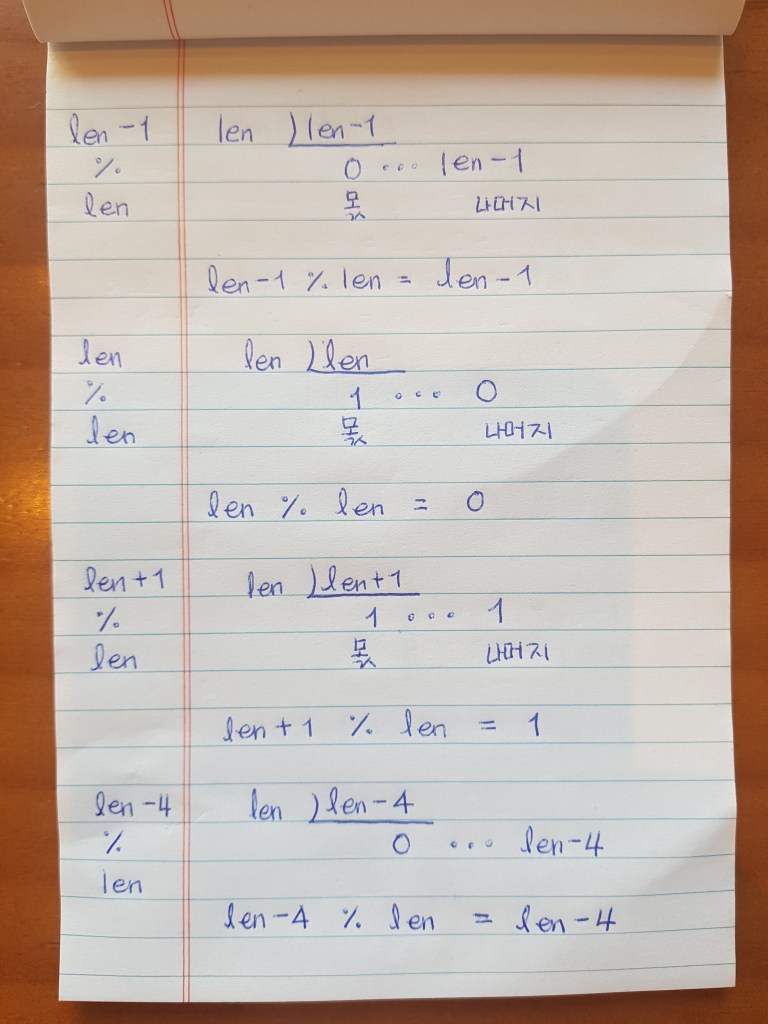 len-1 len )len-1
% 0 ... len-1
len 몫 나머지
len-1 % len = len-1
len len )len
% 1 ... 0
len 몫 나머지
len % len = 0
len+1 len )len+1
% 1 ... 1
len 몫 나머지
len+1 % len = 1
len-4 len )len-4
% 0 ... len-4
len
len-4 % len = len-4